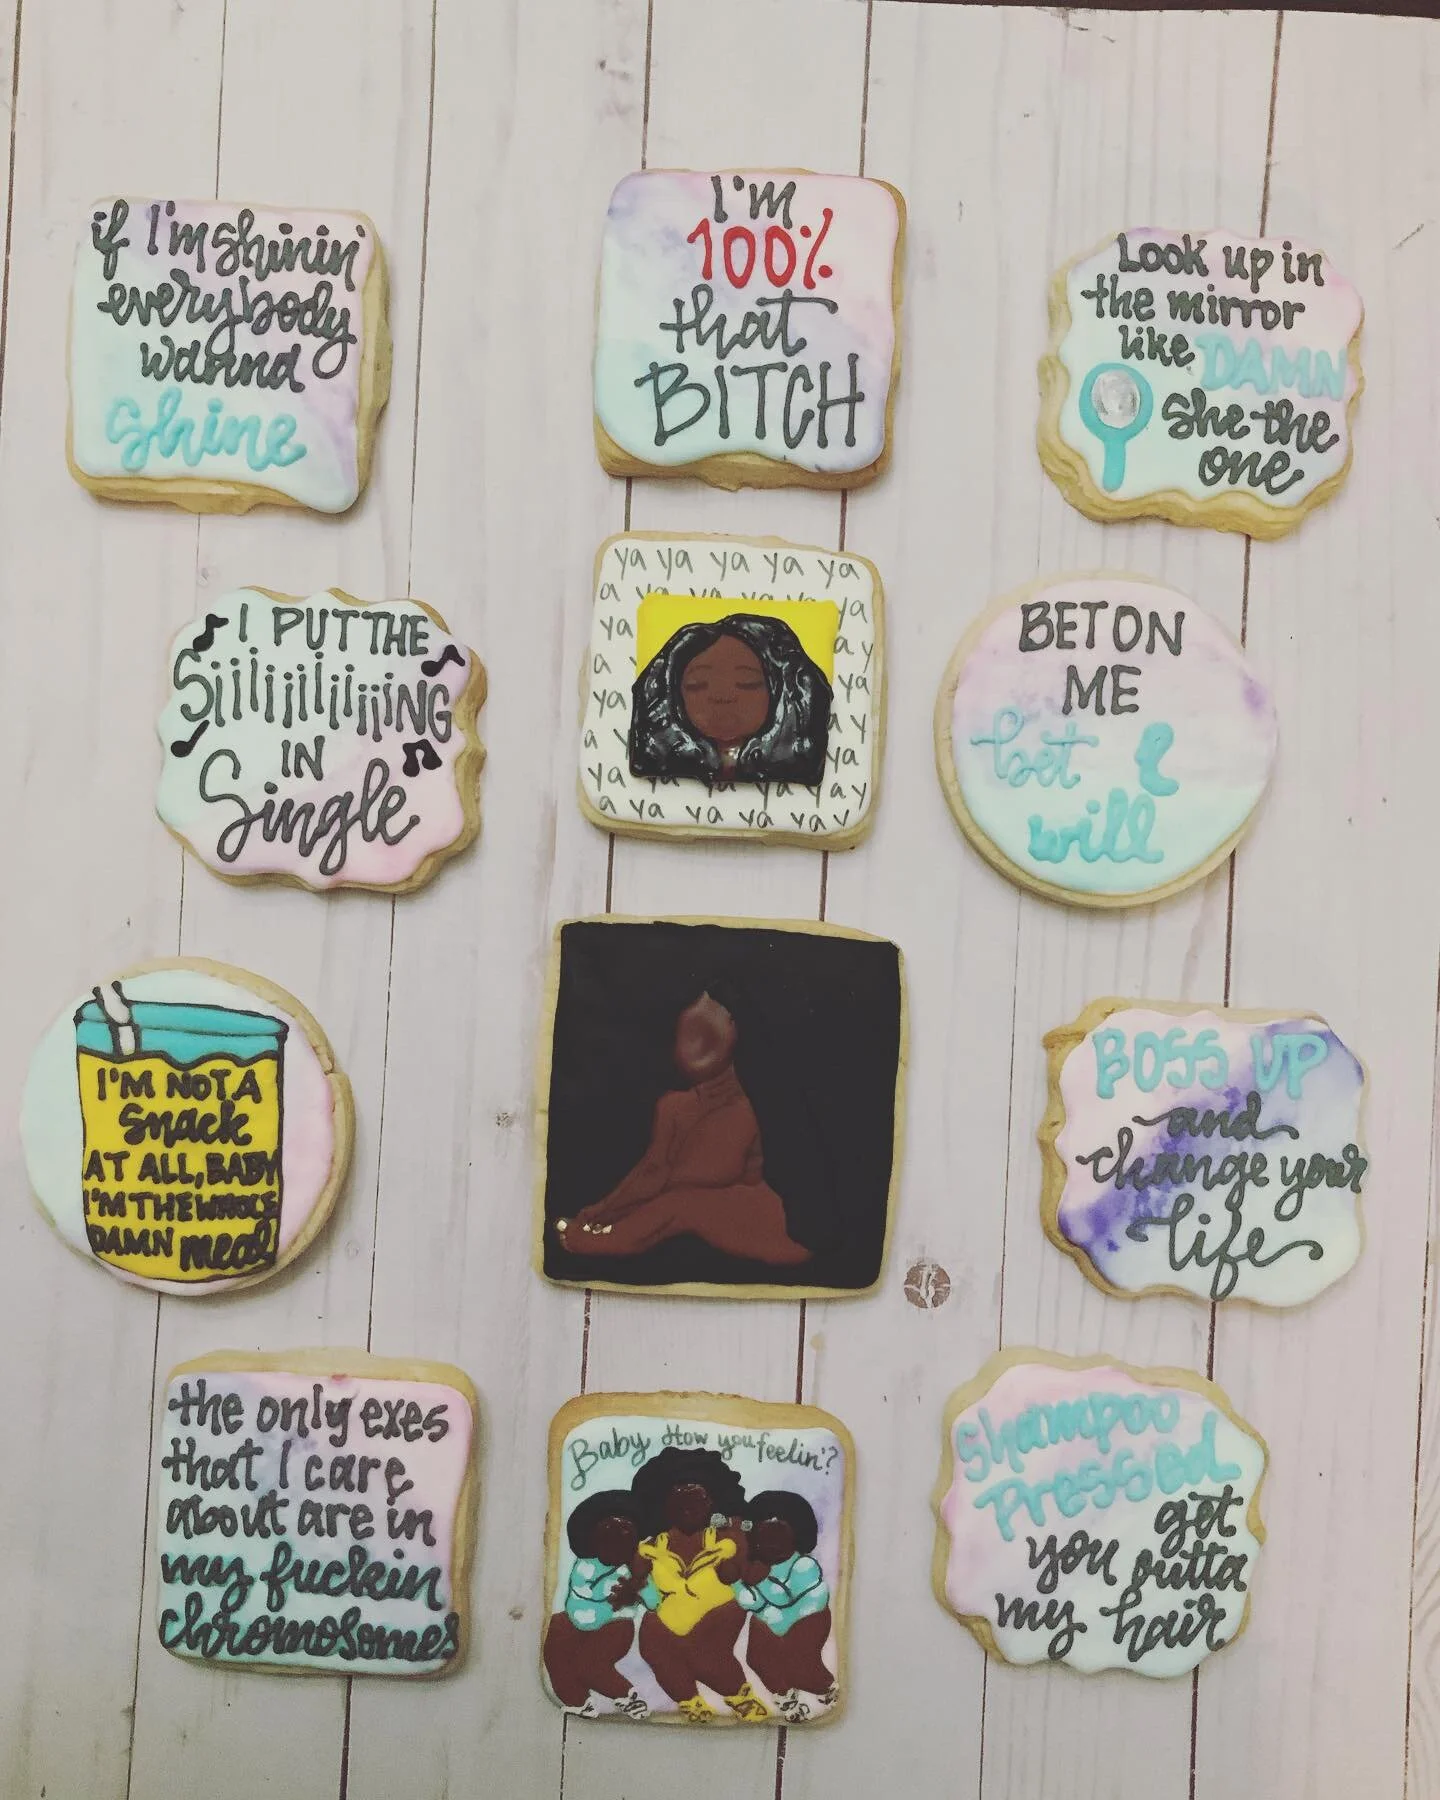 if I'm shinin'
everybody
wanna
shine
I'm
100%
that
BITCH
Look up in
the mirror
like DAMN
she the
one
I PUT THE
Siiiiiiiiiiiiing
IN
Single
ya ya ya ya ya
ya
ya
ay
a
ya
ya
ay
a
ya
ya
ay
a ya ya ya ya y
BET ON
ME
bet I
will
I'M NOT A
Snack
AT ALL, BABY
I'M THE WHOLE
DAMN meal
BOSS UP
and
change your
life
the only exes
that I care
about are in
my fuckin
chromosomes
Baby How you feelin'?
Shampoo
Pressed
get
you outta
my hair